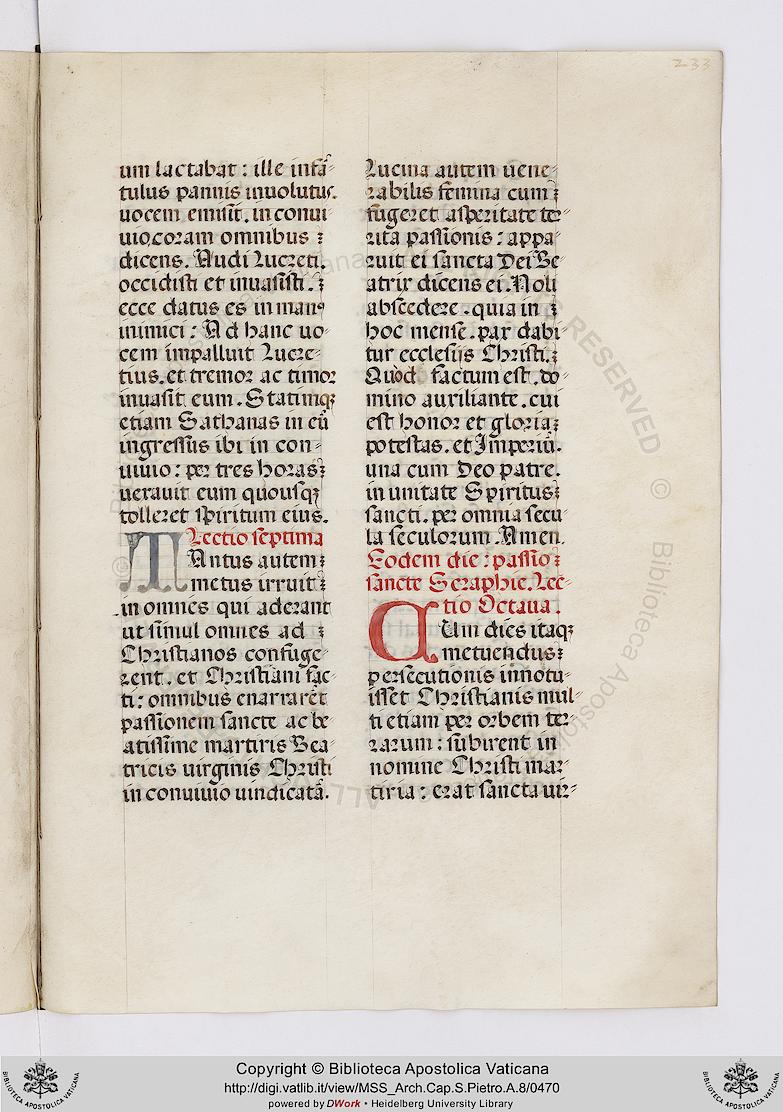 233
um lactabat : ille infā-
tulus pannis inuolutus.
uocem emisit. in conui-
uio. coram omnibus :
dicens. Audi Lucreti.
occidisti et inuasisti. :
ecce datus es in manꝰ
inimici : Ad hanc uo-
cem impalluit Lucre-
tius. et tremor ac timor
inuasit eum. Statimqꝫ
etiam Sathanas in eū
ingressus ibi in con-
uiuio : per tres horas :
uexauit eum quousqꝫ
tolleret spiritum eius.
Lectio septima
TAntus autem :
metus irruit :
in omnes qui aderant
ut simul omnes ad :
Christianos confuge-
rent. et Christiani fac-
ti : omnibus enarrarēt
passionem sancte ac be
atissime martiris Bea-
tricis uirginis Christi
in conuiuio uindicatā.
Lucina autem uene-
rabilis femina cum :
fugeret asperitate ter-
rita passionis : appa-
ruit ei sancta Dei Be-
atrix dicens ei. Noli
abscedere. quia in :
hoc mense. pax dabi-
tur ecclesijs Christi. :
Quod factum est. do-
mino auxiliante. cui
est honor et gloria :
potestas. et Imperiū.
una cum Deo patre.
in unitate Spiritus :
sancti. per omnia secu-
la seculorum. Amen.
Eodem die : passio :
sancte Seraphie. Lec-
tio Octaua.
CUm dies itaqꝫ
metuendus :
persecutionis innotu-
isset Christianis mul-
ti etiam per orbem ter-
rarum : subirent in
nomine Christi mar-
tiria : erat sancta uir-
Copyright © Biblioteca Apostolica Vaticana
http://digi.vatlib.it/view/MSS_Arch.Cap.S.Pietro.A.8/0470
powered by DWork • Heidelberg University Library
BIBLIOTECA APOSTOLICA VATICANA
BIBLIOTECA APOSTOLICA VATICANA